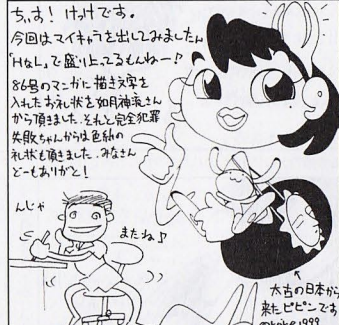 ちぃす！けっけです。
今回はマイキャラを出してみましたん
「H&L」で盛り上ってるもんねー♪
86号のマンガに描き文字を
入れたお礼状を如月神流さん
から頂きました。それと完全犯罪
失敗ちゃんからは色紙の
礼状も頂きました。みなさん
どーもありがと！
んじゃ
またね♪
太古の日本から
来たピピンです
1999